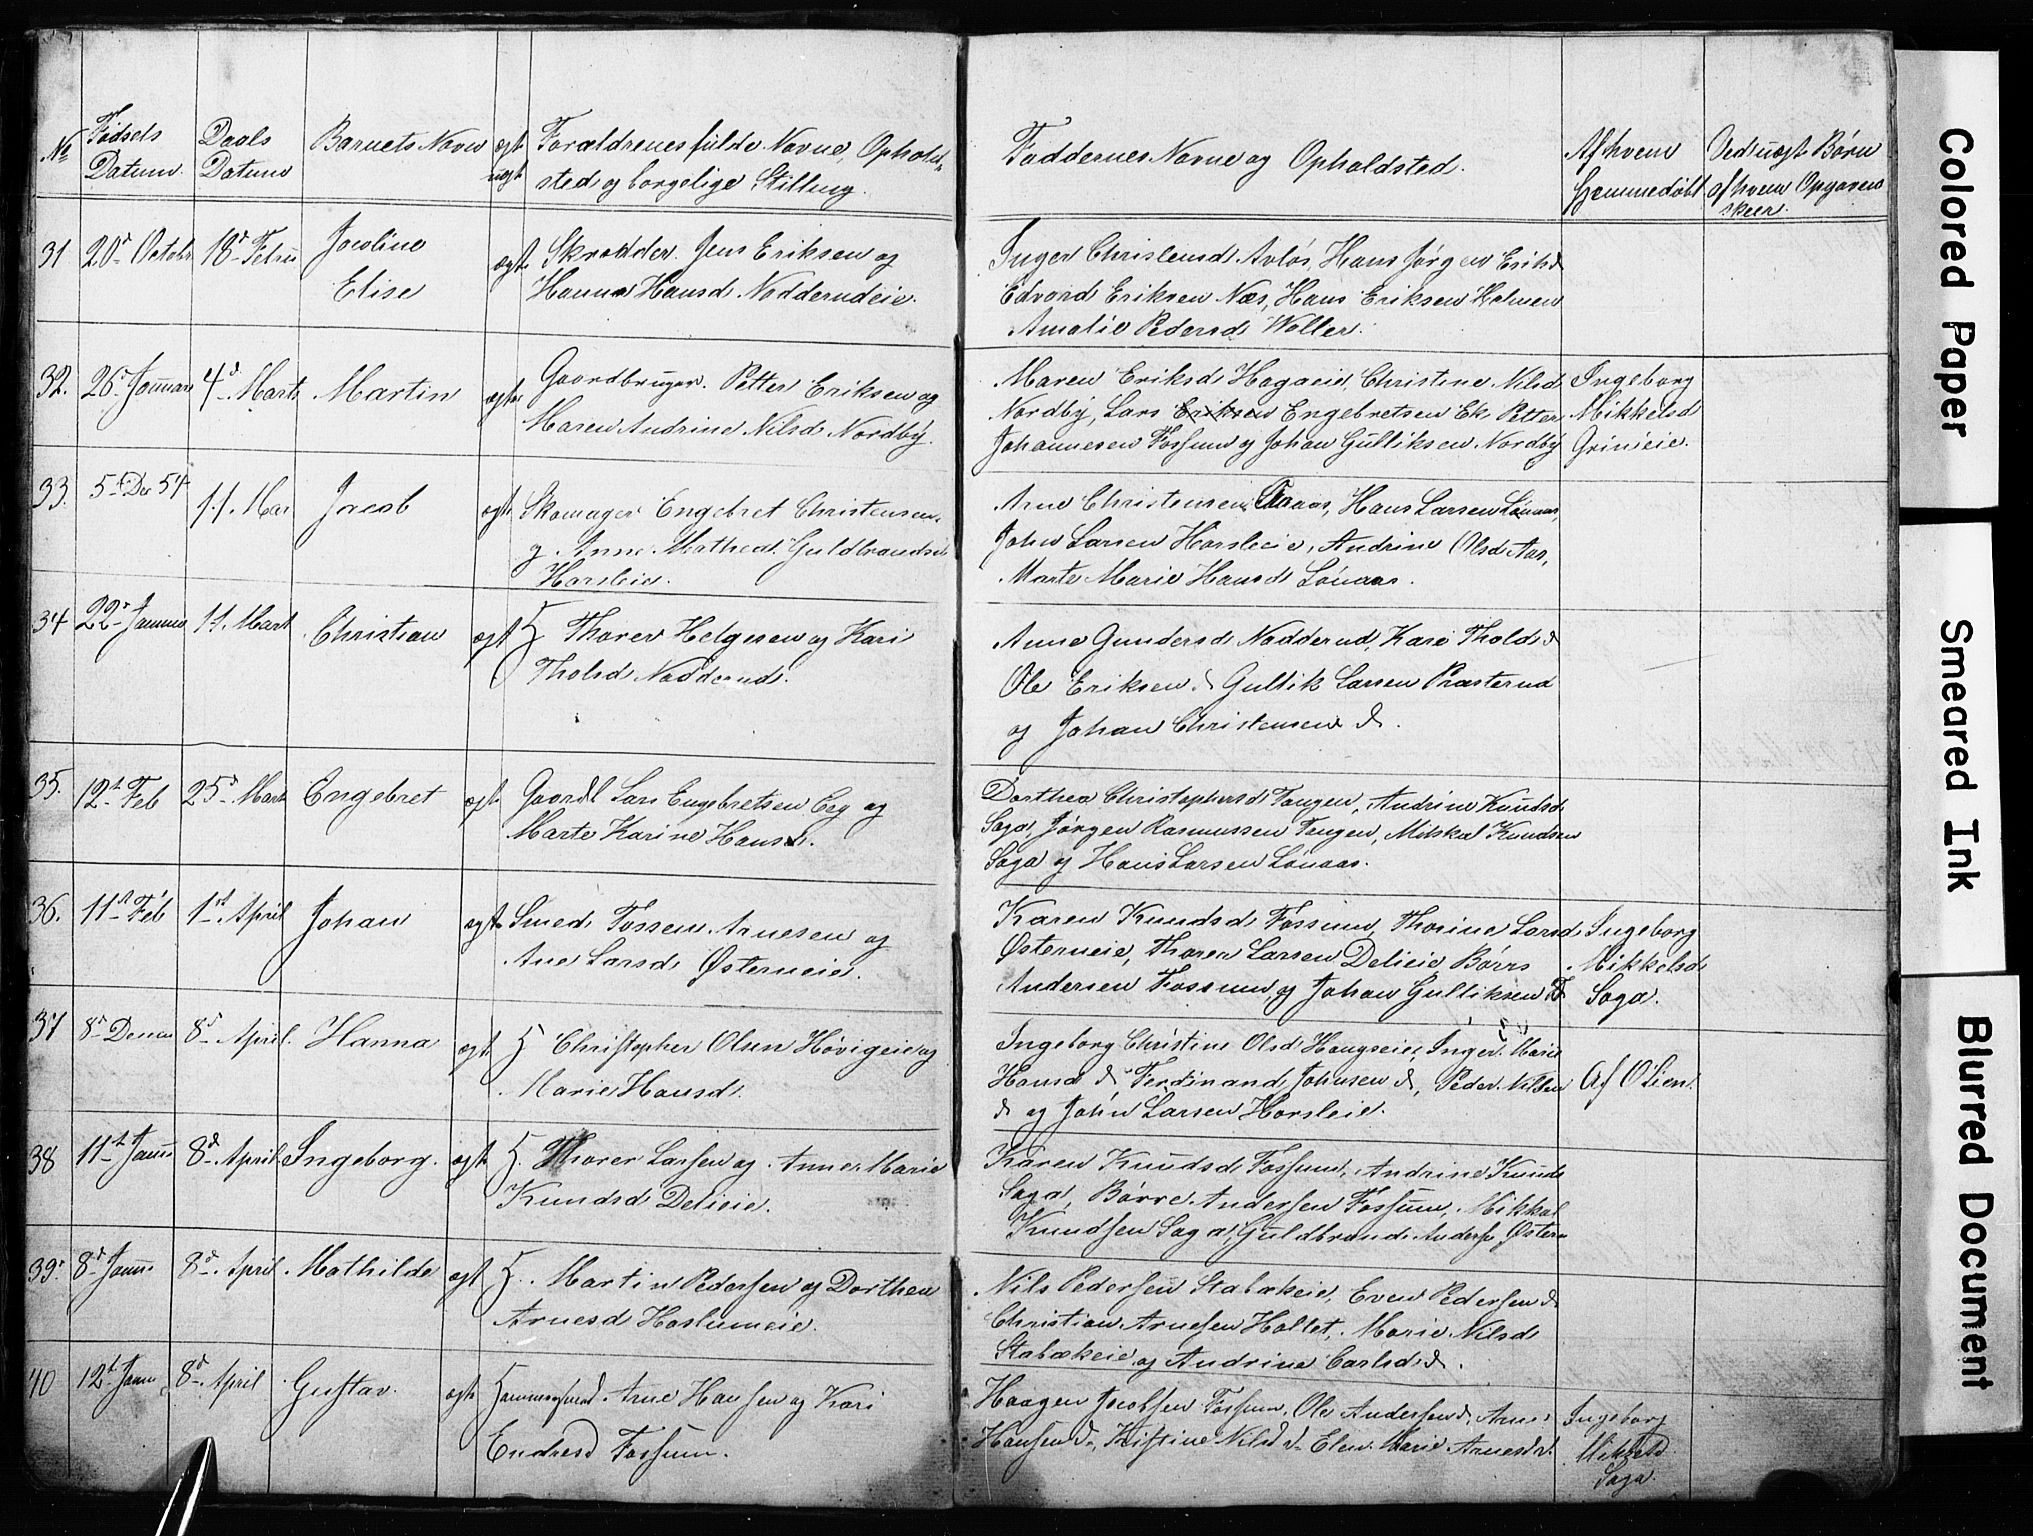 No
Fødsels
Datum.
Daabs
Datum
Barnets Navn
ægt
uægt
Forældrenes fulde Navne, Ophold-
sted og borgelige Stilling.
Faddernes Navne og Opholdsted.
Af hvem
Hjemmedøbt
Ved uægt Børn
af hvem Opgaven
skeer.
31 20de Octobr 18de Febru Jacoline ægt. Skrædder. Jens Eriksen og
Elise Hanna Hansd Nadderudeie.
Inger Christensd Avløs, Hans Jørgen Eriks
Edvard Eriksen Næs, Hans Eriksen Holmen
Amalie Pedersd Woller.
32. 26 Januar 4d Marts Martin ægte Gaardbruger. Petter Eriksen og
Maren Andrine Nilsd Nordby.
Maren Eriksd Hagaeie, Christine Nilsd
Nordby, Lars Eriksen Engebretsen Ek Petter
Johannesen Fossum og Johan Gulliksen Nordby
Ingeborg
Mikkelsd
Grinieie.
33. 5 Dec 54 11. Mar Jacob ægt. Skomager Engebret Christensen
og Anne Mathea Guldbrandsd
Horsleie.
Arne Christensen Haaas, Hans Larsen Lønaas,
John Larsen Horsleeie, Andrine Olsd Aas,
Marte Marie Hansd Lønaas.
34 22d Januar 11. Mart Christian ægt H Thorer Helgesen og Kari
Tholsd Nadderud.
Anne Gundersd Nadderud, Kari Tholsd d
Ole Eriksen d Gullik Larsen Præsterud
og Johan Christensen d.
35. 12t Feb 25d Mart Engebret ægt Gaardb Lars Engebretsen Eeg og
Marte Karine Hansd.
Dorthea Christophersd Tangen, Andrine Knudsd
Saga, Jørgen Rasmussen Tangen, Mikkal Knudsen
Saga og Hans Larsen Lønaas.
36. 11t Feb 1st April Johan ægt Smed Tossen Arnesen og
Ane Larsd Østerneie.
Karen Knudsd Fossum, Thorine Larsd
Østerneie, Thorer Larsen Delieie Børrs
Andersen Fossum og Johan Gulliksen F
Ingeborg
Mikkelsd
Saga.
37 8d Decem 8d April. Hanna ægt H Christopher Olsen Høvigeie og
Marie Hansd.
Ingeborg Christine Olsd Haugseie, Inger Marie
Hansd d Ferdinand Johnsen d, Peder Nilsen
d og John Larsen Horsleie.
Af O Lien.
38 11t Janu 8d April Ingeborg. ægt H. Thorer Larsen og Anne Marie
Knudsd Delieie.
Karen Knudsd Fossum, Andrine Knuds
Saga, Børre Andersen Fossum, Mikkal
Knudsen Saga, Guldbrand Anderse Østern
39. 8d Janu 8d April Mathilde ægt H. Martin Pedersen og Dorthea
Arnesd Haslumeie.
Nils Pedersen Stabækeie, Even Pedersen d
Christian Arnesen Hallet, Marie Nilsd
Stabækeie og Andrine Carlsd d.
40 12t Janu 8d April Gustav. ægt Hammersmed. Arne Hansen og Kari
Endresd Fossum.
Haagen Jacobsen Fossum, Ole Andersen d, Arne
Hansen d, Kristine Nilsd d Elen Marie Arnesd d.
Ingeborg
Mikkelsd
Saga.
Colored Paper
Smeared Ink
Blurred Document